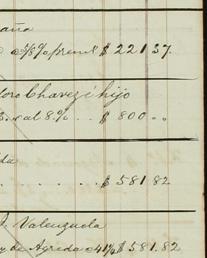 aña
o 4/8% prem $ 2213 7.
doro Chavez é hijo
S. val 8% .. $ 800 „„
da
. . . . . . . $ 581.82
J. Valenzuela
y de Agreda c 41% $ 581.82